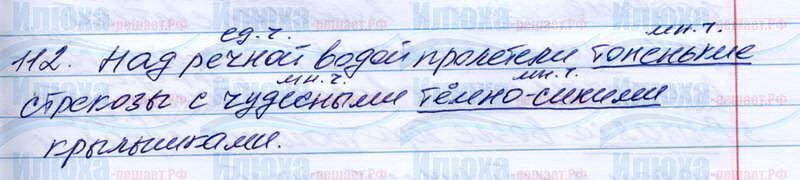 ед.ч. мн.ч.
112. Над речной водой пролетели тоненькие
мн.ч. мн.ч.
стрекозы с чудесными тёмно-синими
крылышками.
Илюха-решает.РФ